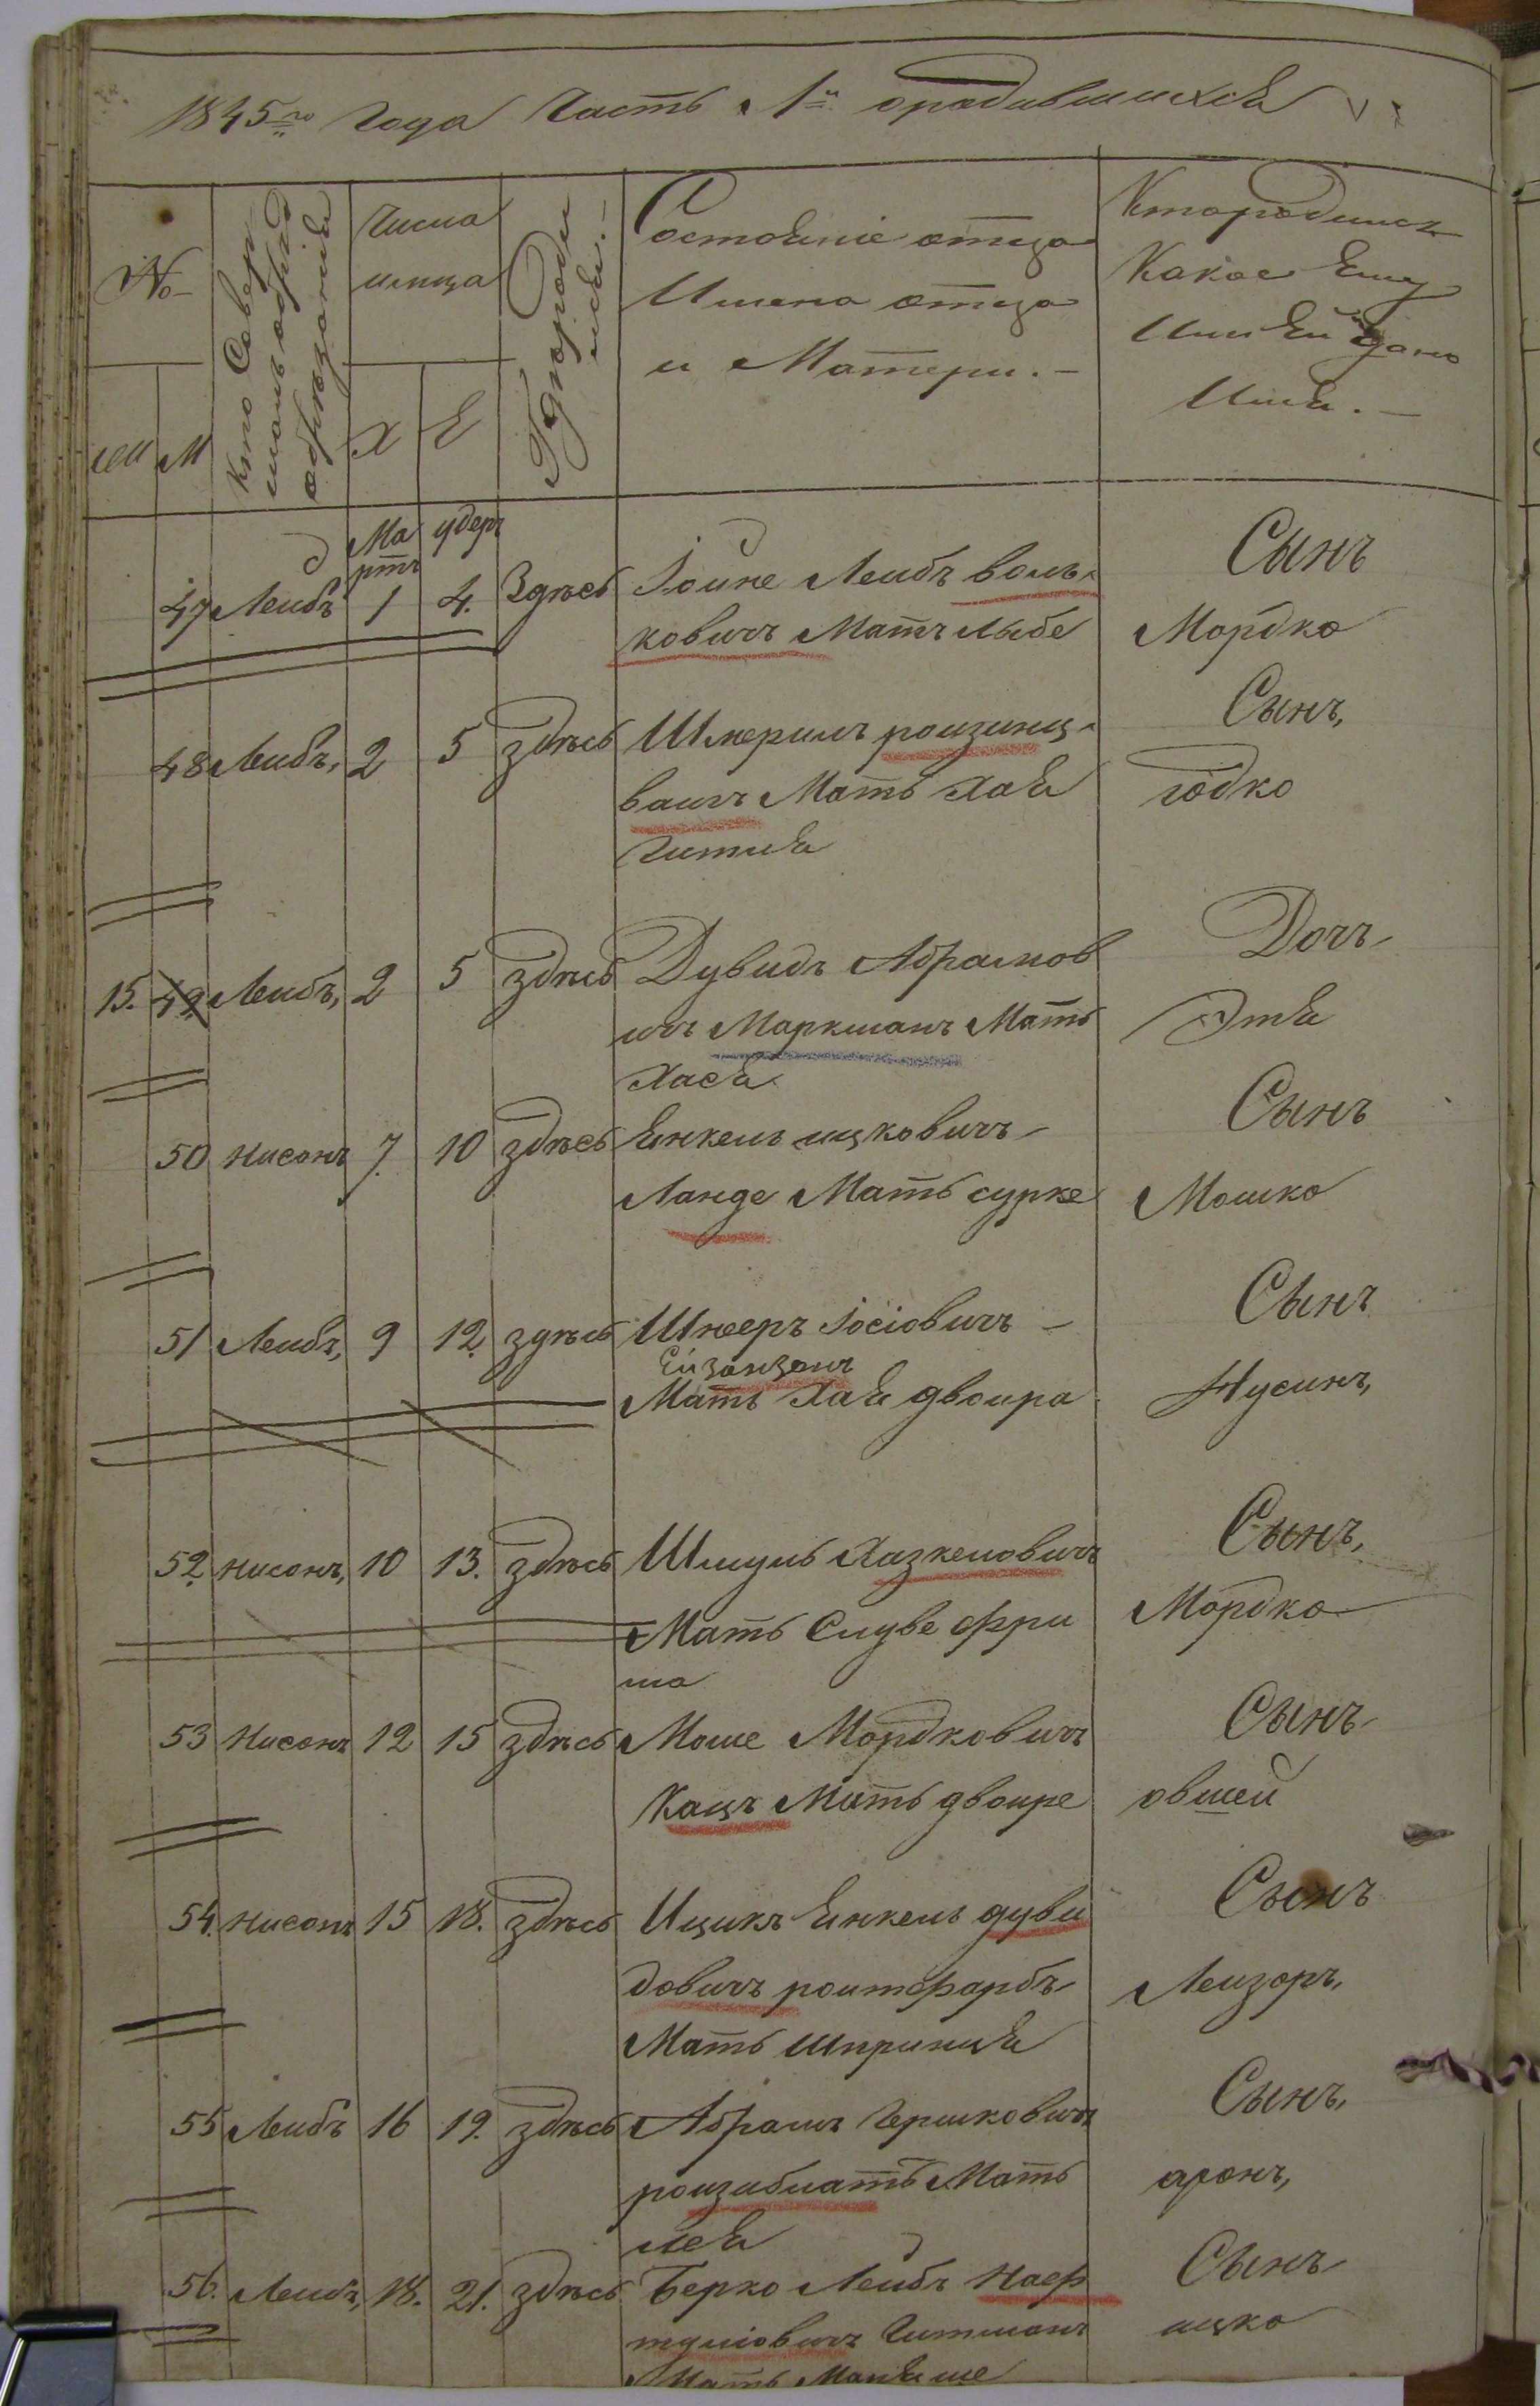 1845го года Часть 1я ородившихся
№
жен М
Кто Совер
шалъ обрядъ
обрѣзанія
Числа
мѣсяца
Х Е
Где роди
лся.
Состояніе отца
Имена отца
и Матери.
Кто родился
Какое Ему
или Ей дано
Имя.
Мартъ
47 Лейбъ 1 4. Здѣсь Іойне Лейбъ воль
ковичъ Мать Лыбе
Сынъ
Мордко
48 Лейбъ, 2 5 здѣсь Шмерилъ
Мать Хая
Гитля
Сынъ,
іодко
15. 49 Лейбъ, 2 5 здѣсь Дувидъ Абрамов
ичъ Маркманъ Мать
Хася
Дочь
Этя
50 Нисонъ 7. 10 здѣсь Янкель ицковичъ
Ланде Мать сурке
Сынъ
Мошко
51 Лейбъ, 9 12. здѣсь Шнееръ Іосіовичъ
Ейзанзонъ
Мать Хая двоира
Сынъ
Нусинъ,
52 нисонъ, 10 13. здѣсь Шмуль Хазкеловичъ
Мать Слуве Фри
ма
Сынъ,
Мордко
53 Нисонъ 12 15 здѣсь Моше Мордковичъ
Кацъ Мать двоире
Сынъ
овшей
54. Нисонъ 15 18. здѣсь Ицикъ Янкель дуви
довичъ роитфарбъ
Мать Шпринця
Сынъ
Леизоръ,
55 Лейбъ 16 19. здѣсь Абрамъ Гершковичъ
роизиблатъ Мать
лея
Сынъ,
аронъ,
56. Лейбъ, 18. 21. здѣсь Берко Лейбъ Наф
туліовичъ Гитманъ
Мать
Сынъ
ицко